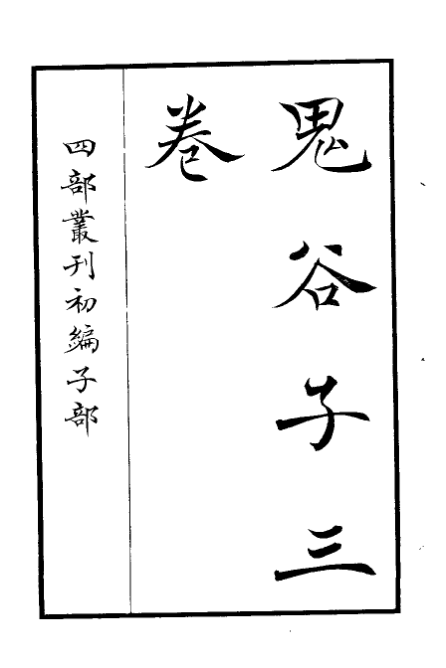 鬼谷子三
卷
四部叢刊初編子部